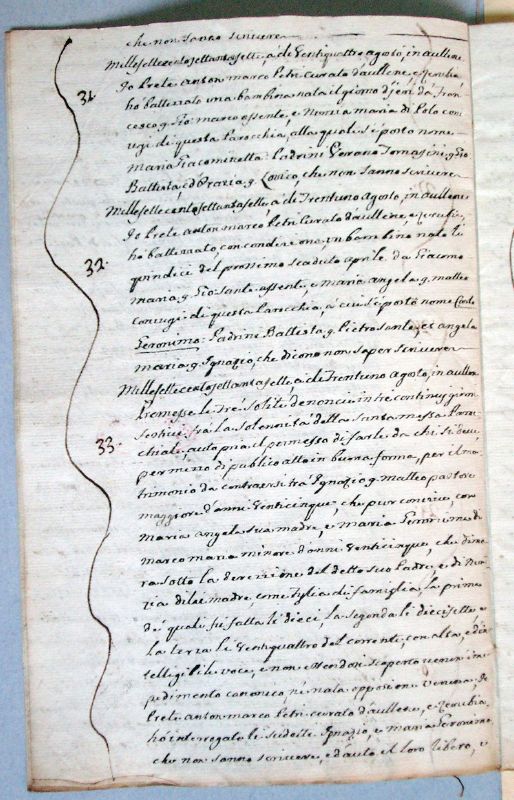 che non sanno scrivere
Millesettecentosettantasette, a di Ventiquattro agosto, in aullene
31. Io Prete Anton marco Petri curato d'aullene, e Zerubia
ho battezzato una bambina nata il giorno di jeri da Fran
cesco q. Gio: marco assente, e Nunzia maria di Polo con
iugi di questa Parocchia, alla quale si è posto nome
Maria Giacominetta: Padrini Tomasini q. Gio
Battista, ed Orazia q. che non sanno scrivere
Millesettecentosettantasette, a di Trentuno Agosto, in aullene
Io Prete anton marco Petri Curato d'aullene, e Zerubia,
32. ho battezzato, con condizione un bambino nato li
quindeci del prossimo scaduto aprile da Giacomo
maria q. Gio: Santo assente, e maria angela q. matteo
Coniugi di questa Parocchia, a cui si è posto nome Carlo
Geronimo: Padrini Battista q. Pietro Santo, et angela
maria q. Ignazio, che dicono non saper scrivere
Millesettecentosettantasette, a di Trentuno Agosto, in aullene
33. Premesse le trè solite denoncie in tre continui giorni
festivi, frà la solennità della Santa messa Parroc
chiale, avuto pria il permesso di farle da chi si deve,
per mezzo di publico atto in buona forma, per il ma
trimonio da contraersi tra Ignazio q. matteo pastore
maggiore d'anni Venticinque, che pur convive, con
Maria angela sua madre, e Maria Geronima di
marco maria minore d'anni Venticinque, che dimo
ra sotto la direzione del detto suo Padre, e di Nun
zia di lei madre, come figlia di famiglia, la prima
de quali fù fatta li dieci la segonda li diecisette, e
la terza li Ventiquattro del corrente, con alta, ed in
telligibile voce, e non essendosi scoperto verun im
pedimento canonico, ne nata opposizione veruna, Io
Prete anton marco Petri curato d'aullene, e Zerubia,
ho interrogato li sudetti Ignazio, e maria Geronima,
che non sanno scrivere, ed avuto il loro libero, e